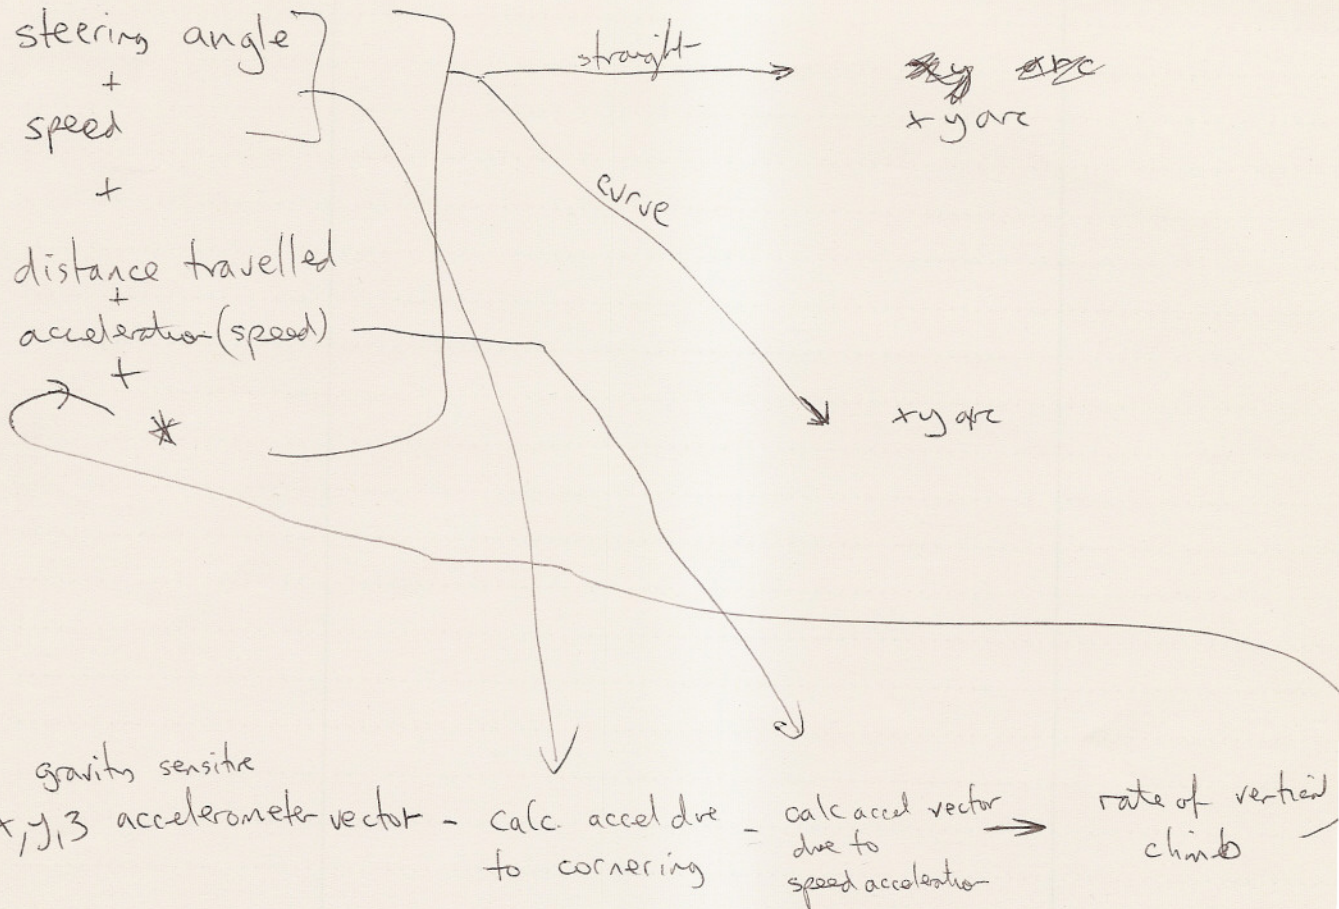 steering angle
+
speed
+
distance travelled
+
acceleration (speed)
+
*
straight
xy arc
xy arc
curve
xy arc
gravity sensitive
x, y, z accelerometer vector - calc. accel due to cornering - calc accel vector due to speed acceleration → rate of vertical climb